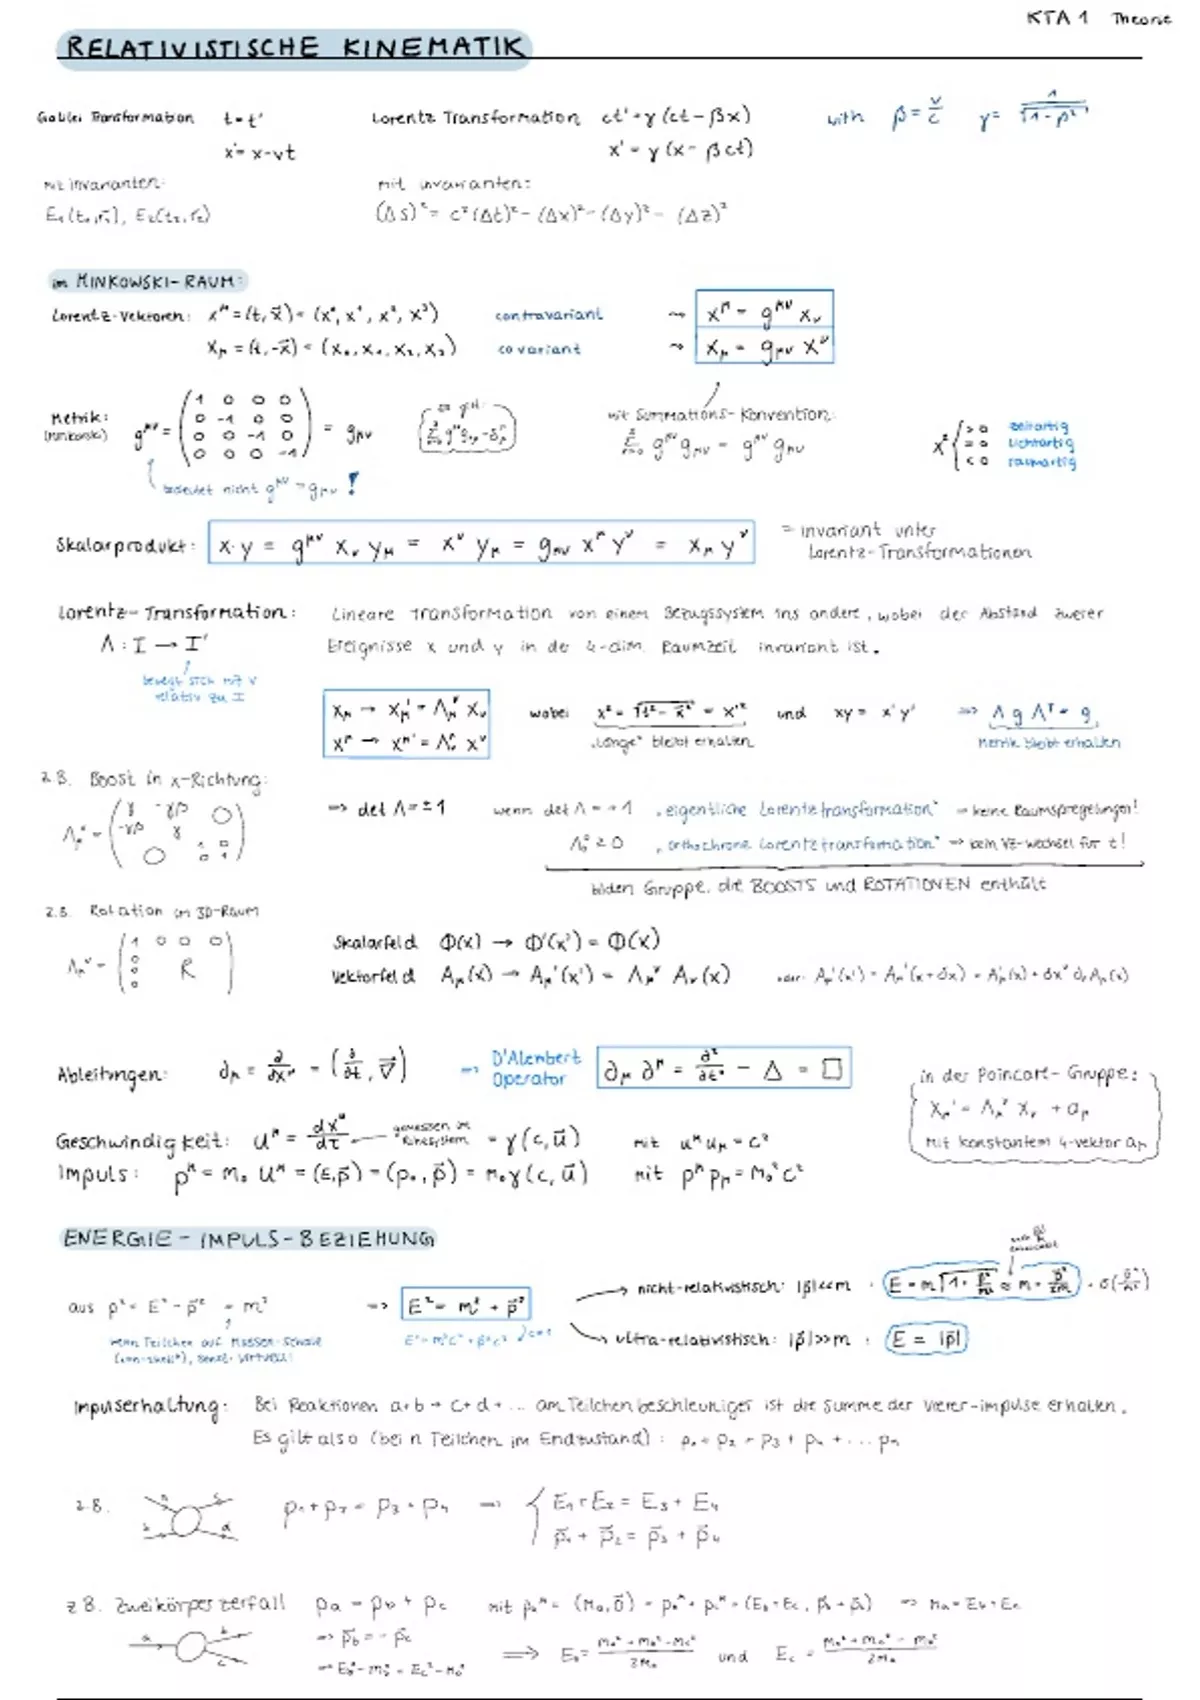 KTA 1 Theorie
RELATIVISTISCHE KINEMATIK
Galilei Transformation t = t'
x' = x - vt
mit invarianten:
E₁(t₁,r₁), E₂(t₂,r₂)
Lorentz Transformation ct' = γ(ct - βx)
x' = γ(x - βct)
with β = v/c γ = 1/√(1-β²)
mit invarianten:
(Δs)² = c²(Δt)² - (Δx)² - (Δy)² - (Δz)²
im MINKOWSKI-RAUM:
Lorentz-Vektoren: x^μ = (t, x⃗) = (x⁰, x¹, x², x³) contravariant → x^μ = g^μν x_ν
x_μ = (t, -x⃗) = (x₀, x₁, x₂, x₃) covariant → x_μ = g_μν x^ν
Metrik: (Minkowski) g^μν = (1 0 0 0
0 -1 0 0
0 0 -1 0
0 0 0 -1) = g_μν
bedeutet nicht g^μν = g_μν !
mit Summations-Konvention:
Σ g^μν g_μν = g^μν g_μν
x² { > 0 zeitartig
= 0 lichtartig
< 0 raumartig
Skalarprodukt: x·y = g^μν x_ν y_μ = x^ν y_μ = g_μν x^μ y^ν = x_μ y^ν
= invariant unter
Lorentz-Transformationen
Lorentz-Transformation: Lineare Transformation von einem Bezugssystem ins andere, wobei der Abstand zweier
Ereignisse x und y in der 4-dim. Raumzeit invariant ist.
Λ : I → I'
bewegt sich mit v
relativ zu I
x_μ → x_μ' = Λ_μ^ν x_ν
x^μ → x^μ' = Λ^μ_ν x^ν
wobei x² = √(t² - x⃗²) = x'² und xy = x'y' ⇒ Λ g Λᵀ = g
"Länge" bleibt erhalten Metrik bleibt erhalten
z.B. Boost in x-Richtung:
Λ_μ^ν = (γ -γβ 0
-γβ γ
0 1 0
0 1)
⇒ det Λ = ±1 wenn det Λ = +1 "eigentliche Lorentztransformation" → keine Raumspiegelungen!
Λ⁰₀ ≥ 0 "orthochrone Lorentztransformation" → kein VZ-Wechsel für t!
bilden Gruppe, die BOOSTS und ROTATIONEN enthält
z.B. Rotation im 3D-Raum
Λ_μ^ν = (1 0 0 0
0
0 R
0)
Skalarfeld Φ(x) → Φ'(x') = Φ(x)
Vektorfeld A_μ(x) → A_μ'(x') = Λ_μ^ν A_ν(x) oder: A_μ'(x') = A_μ'(x+δx) = A_μ'(x) + δx^ν ∂_ν A_μ(x)
Ableitungen: ∂_μ = ∂/∂x^μ = (∂/∂t, ∇⃗) ⇒ D'Alembert
Operator ∂_μ ∂^μ = ∂²/∂t² - Δ = □
in der Poincaré-Gruppe:
x_μ' = Λ_μ^ν x_ν + a_μ
mit konstantem 4-vektor a_μ
Geschwindigkeit: u^μ = dx^μ/dτ gemessen im Ruhesystem = γ(c, u⃗) mit u^μ u_μ = c²
Impuls: p^μ = m₀ u^μ = (E, p⃗) = (p₀, p⃗) = m₀γ(c, u⃗) mit p^μ p_μ = m₀²c²
ENERGIE-IMPULS-BEZIEHUNG
aus p² = E² - p⃗² = m² ⇒ E² = m² + p⃗²
wenn Teilchen auf Massen-Schale
("on-shell"), sonst virtuell!
E² = m²c⁴ + p²c²
nicht-relativistisch: |p⃗| << m :
ultra-relativistisch: |p⃗| >> m : E = |p⃗|
Impulserhaltung: Bei Reaktionen a + b → c + d + ... am Teilchenbeschleuniger ist die Summe der Vierer-impulse erhalten.
Es gilt also (bei n Teilchen im Endzustand): p₁ + p₂ = p₃ + p₄ + ... p_n
z.B. p₁ + p₂ = p₃ + p₄ ⇒ { E₁ + E₂ = E₃ + E₄
p⃗₁ + p⃗₂ = p⃗₃ + p⃗₄
z.B. Zweikörperzerfall p_a = p_b + p_c mit p_a^μ = (m_a, 0⃗) = p_b^μ + p_c^μ = (E_b + E_c, p⃗_b + p⃗_c) ⇒ m_a = E_b + E_c
⇒ p⃗_b = -p⃗_c
⇒ E_b² - m_b² = E_c² - m_c²